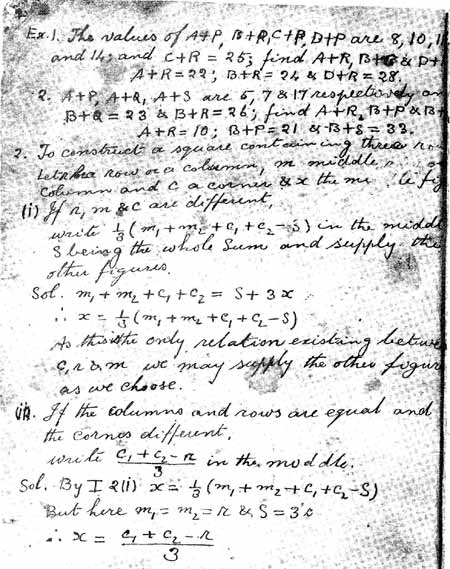 Ex. 1. The values of A+P, B+Q, C+P, D+P are 8, 10, 1
and 14; and C+R = 25; find A+R, B+ & D+
A+R = 22; B+R = 24 & D+R = 28.
2. A+P, A+Q, A+S are 5, 7 & 17 respectively an
B+Q = 23 & B+R = 26; find A+R, B+P & B+
A+R = 10; B+P = 21 & B+S = 33.
2. To construct a square containing three row
Let r be a row or a column, m middle
column and c a corner & x the m le fig
(i) If r, m & c are different,
write ⅓ (m₁ + m₂ + c₁ + c₂ - S) in the middl
S being the whole Sum and supply the
other figures.
Sol. m₁ + m₂ + c₁ + c₂ = S + 3x
∴ x = ⅓ (m₁ + m₂ + c₁ + c₂ - S)
As this is the only relation existing betwe
c, r & m we may supply the other figur
as we choose.
(ii). If the columns and rows are equal and
the corners different,
write (c₁ + c₂ - r)/3 in the middle.
Sol. By I 2(i) x = ⅓ (m₁ + m₂ + c₁ + c₂ - S)
But here m₁ = m₂ = r & S = 3r
∴ x = (c₁ + c₂ - r)/3